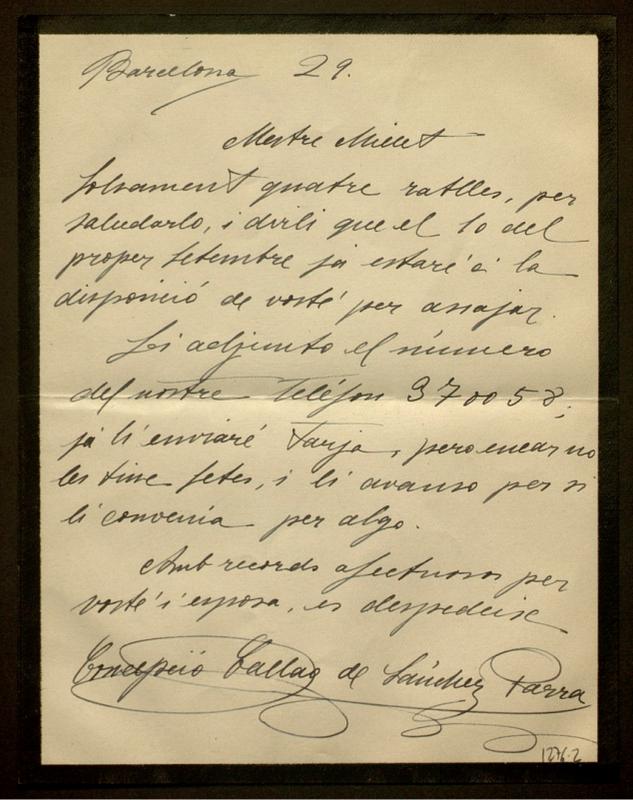 Barcelona 29.
Mestre Millet
Solsament quatre ratlles, per
saludarlo, i dirli que el 10 del
proper setembre ja estaré á la
disposició de vosté per assajar.
Li adjunto el número
del nostre Teléfon 37005 8,
ja li enviaré tarja, pero encar no
les tinc fetes, i li avanso per si
li convenia per algo.
Amb records afectuosos per
vosté i esposa, es despedeix
Concepció Callao de Sánchez Parra
1276-2